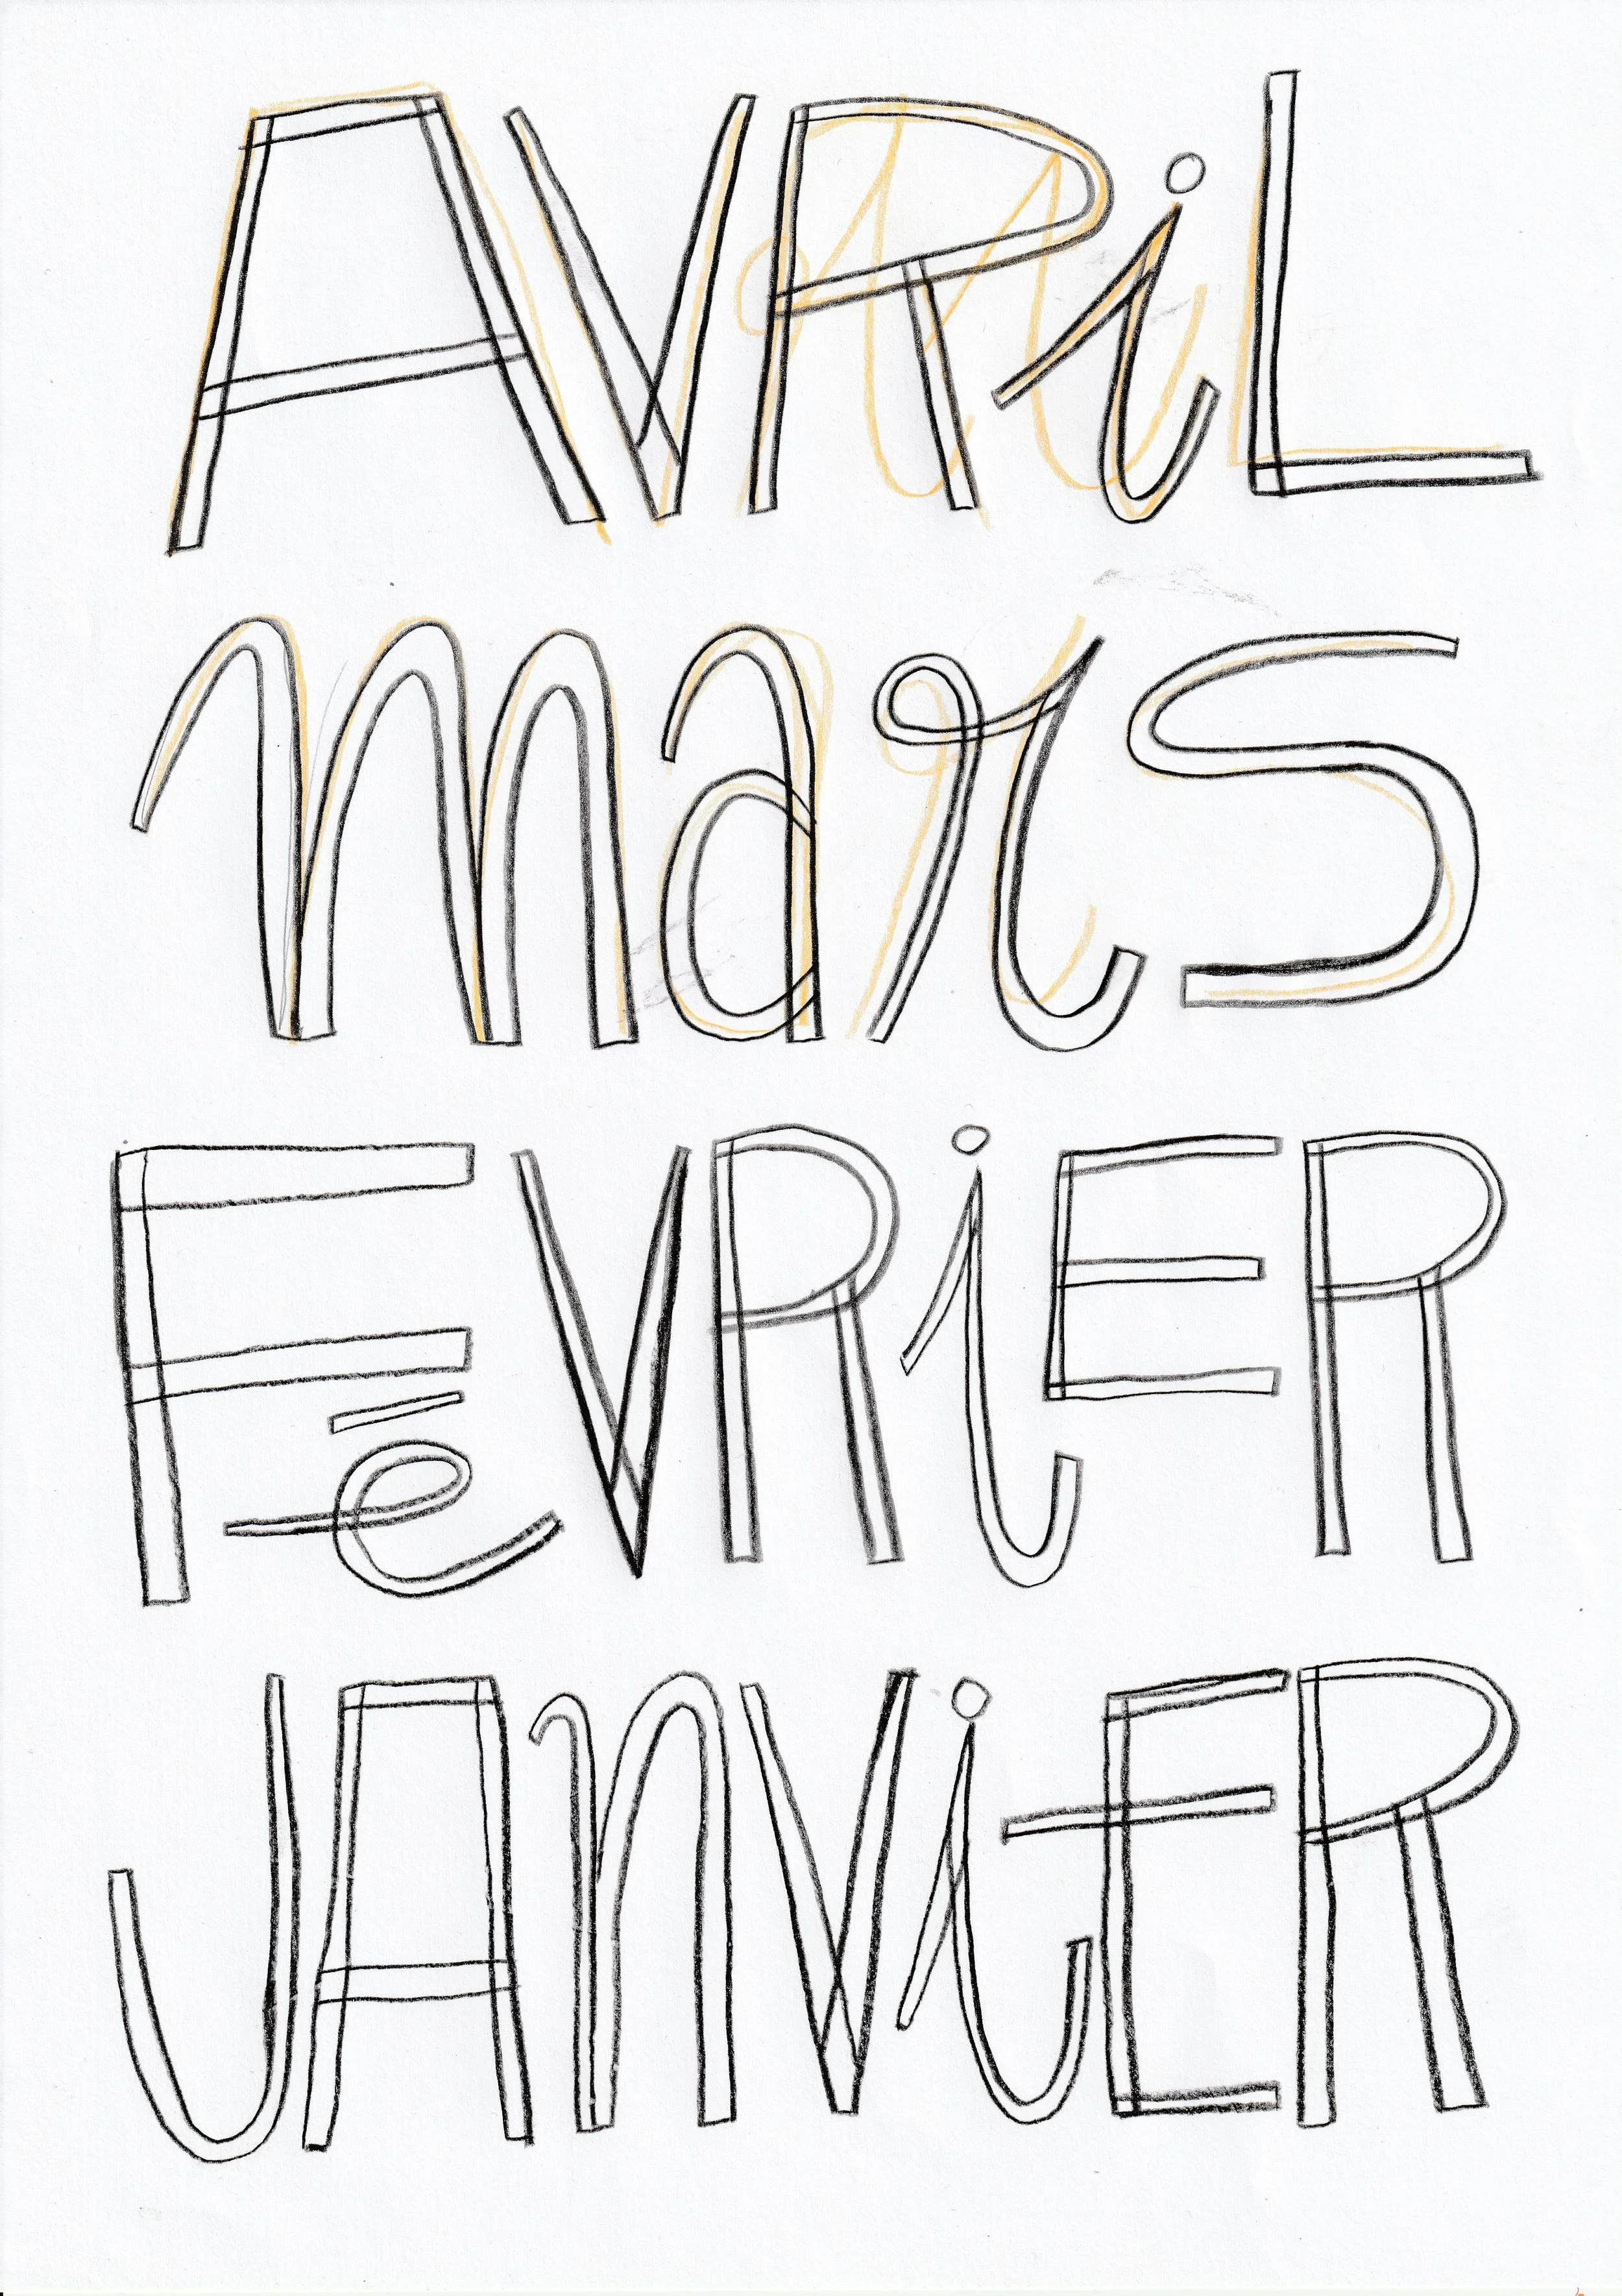 AVRiL
mars
FéVRiER
JAnViER